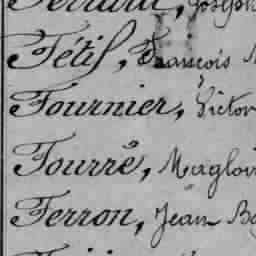 Ferrand, Joseph
Fétis, François
Fournier, Victor
Fourré, Magloir
Ferron, Jean Ba